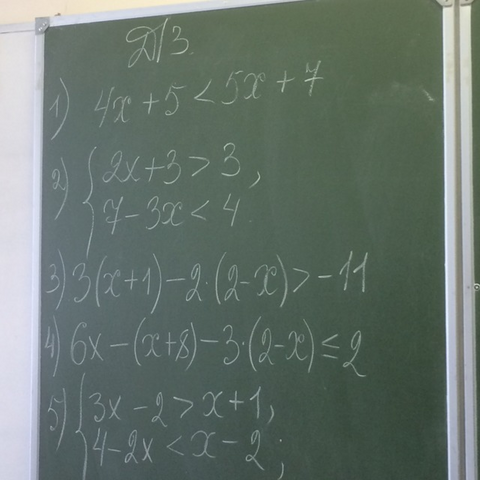 Д/З.
1) 4x + 5 < 5x + 7
2) { 2x + 3 > 3,
7 - 3x < 4.
3) 3(x + 1) - 2·(2 - x) > -11
4) 6x - (x + 8) - 3·(2 - x) ≤ 2
5) { 3x - 2 > x + 1,
4 - 2x < x - 2;